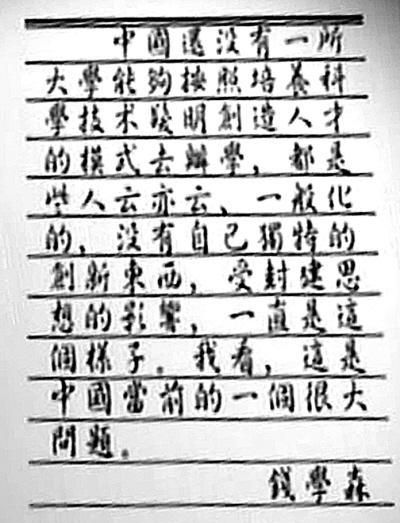 中國還没有一所
大學能夠按照培養科
學技术發明創造人才
的模式去辦學，都是
些人云亦云、一般化
的，没有自己獨特的
創新東西，受封建思
想的影響，一直是這
個樣子。我看，這是
中國當前的一個很大
問題。
錢學森